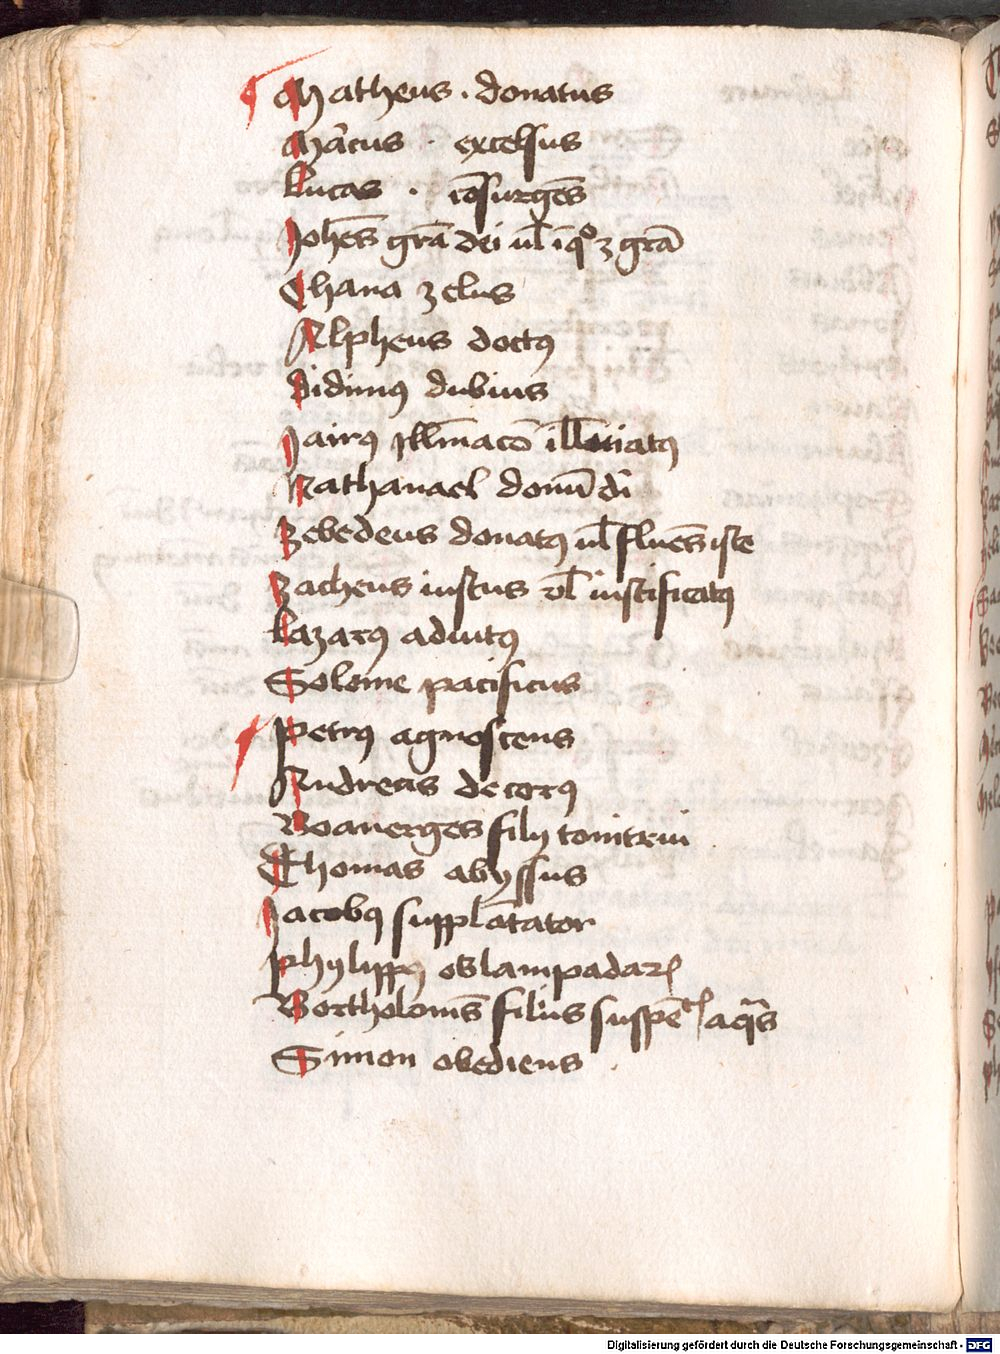 Matheus · donatus
Marcus · excelsus
Lucas · cōsurgēs
Johēs grā dei ul̄ ī q° ʒ grā
Chana ʒelus
Alpheus doctꝰ
Didimꝰ dubius
Jairꝰ
Nathanael donū dī
Zebedeus donatꝰ ul̄ fluēs iste
Zacheus iustus vl̄ iustificatꝰ
Lazarꝰ adiutꝰ
Salome pacificus
Petrꝰ agnoscens
Andreas decorꝰ
Boanerges filij tonitrui
Thomas abyssus
Jacobꝰ supplātator
Phylippꝰ os lampadarꝝ
Bartholomeꝰ filius aq̄s
Simon obediens
Digitalisierung gefördert durch die Deutsche Forschungsgemeinschaft - DFG